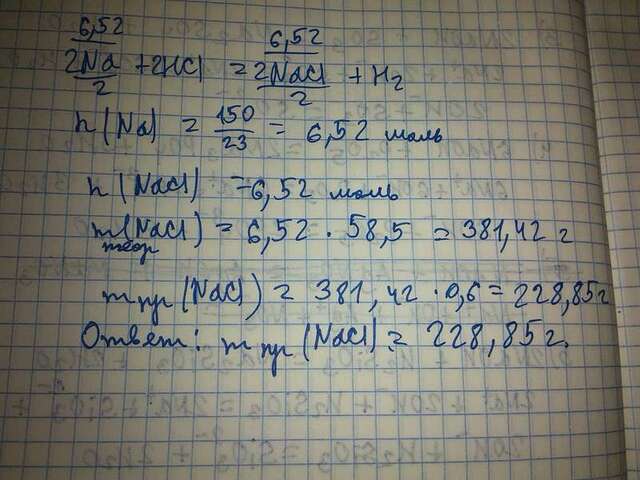 6,52 6,52
2Na + 2HCl = 2NaCl + H2
2 2
n(Na) = 150/23 = 6,52 моль
n(NaCl) = 6,52 моль
m теор (NaCl) = 6,52 · 58,5 = 381,42 г
m пр (NaCl) = 381,42 · 0,6 = 228,85 г
Ответ: m пр (NaCl) = 228,85 г.